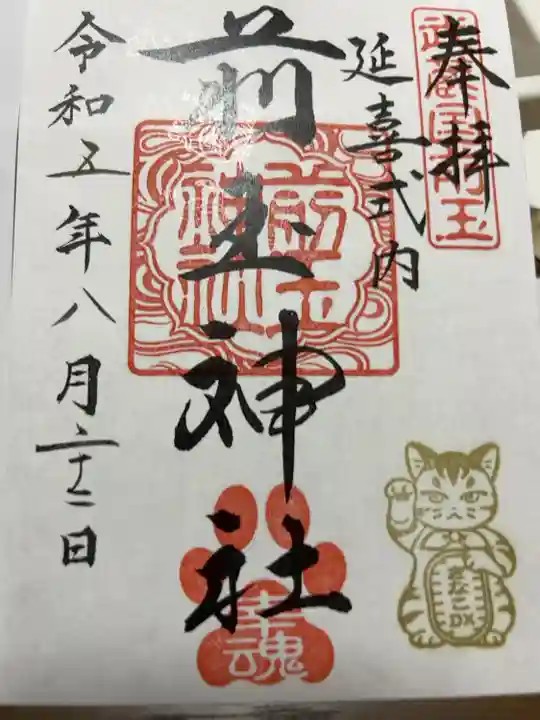 奉拝
武蔵国前玉
延喜式内
前玉神社
前玉
神社
令和五年八月二十二日
幸魂
きなこDX